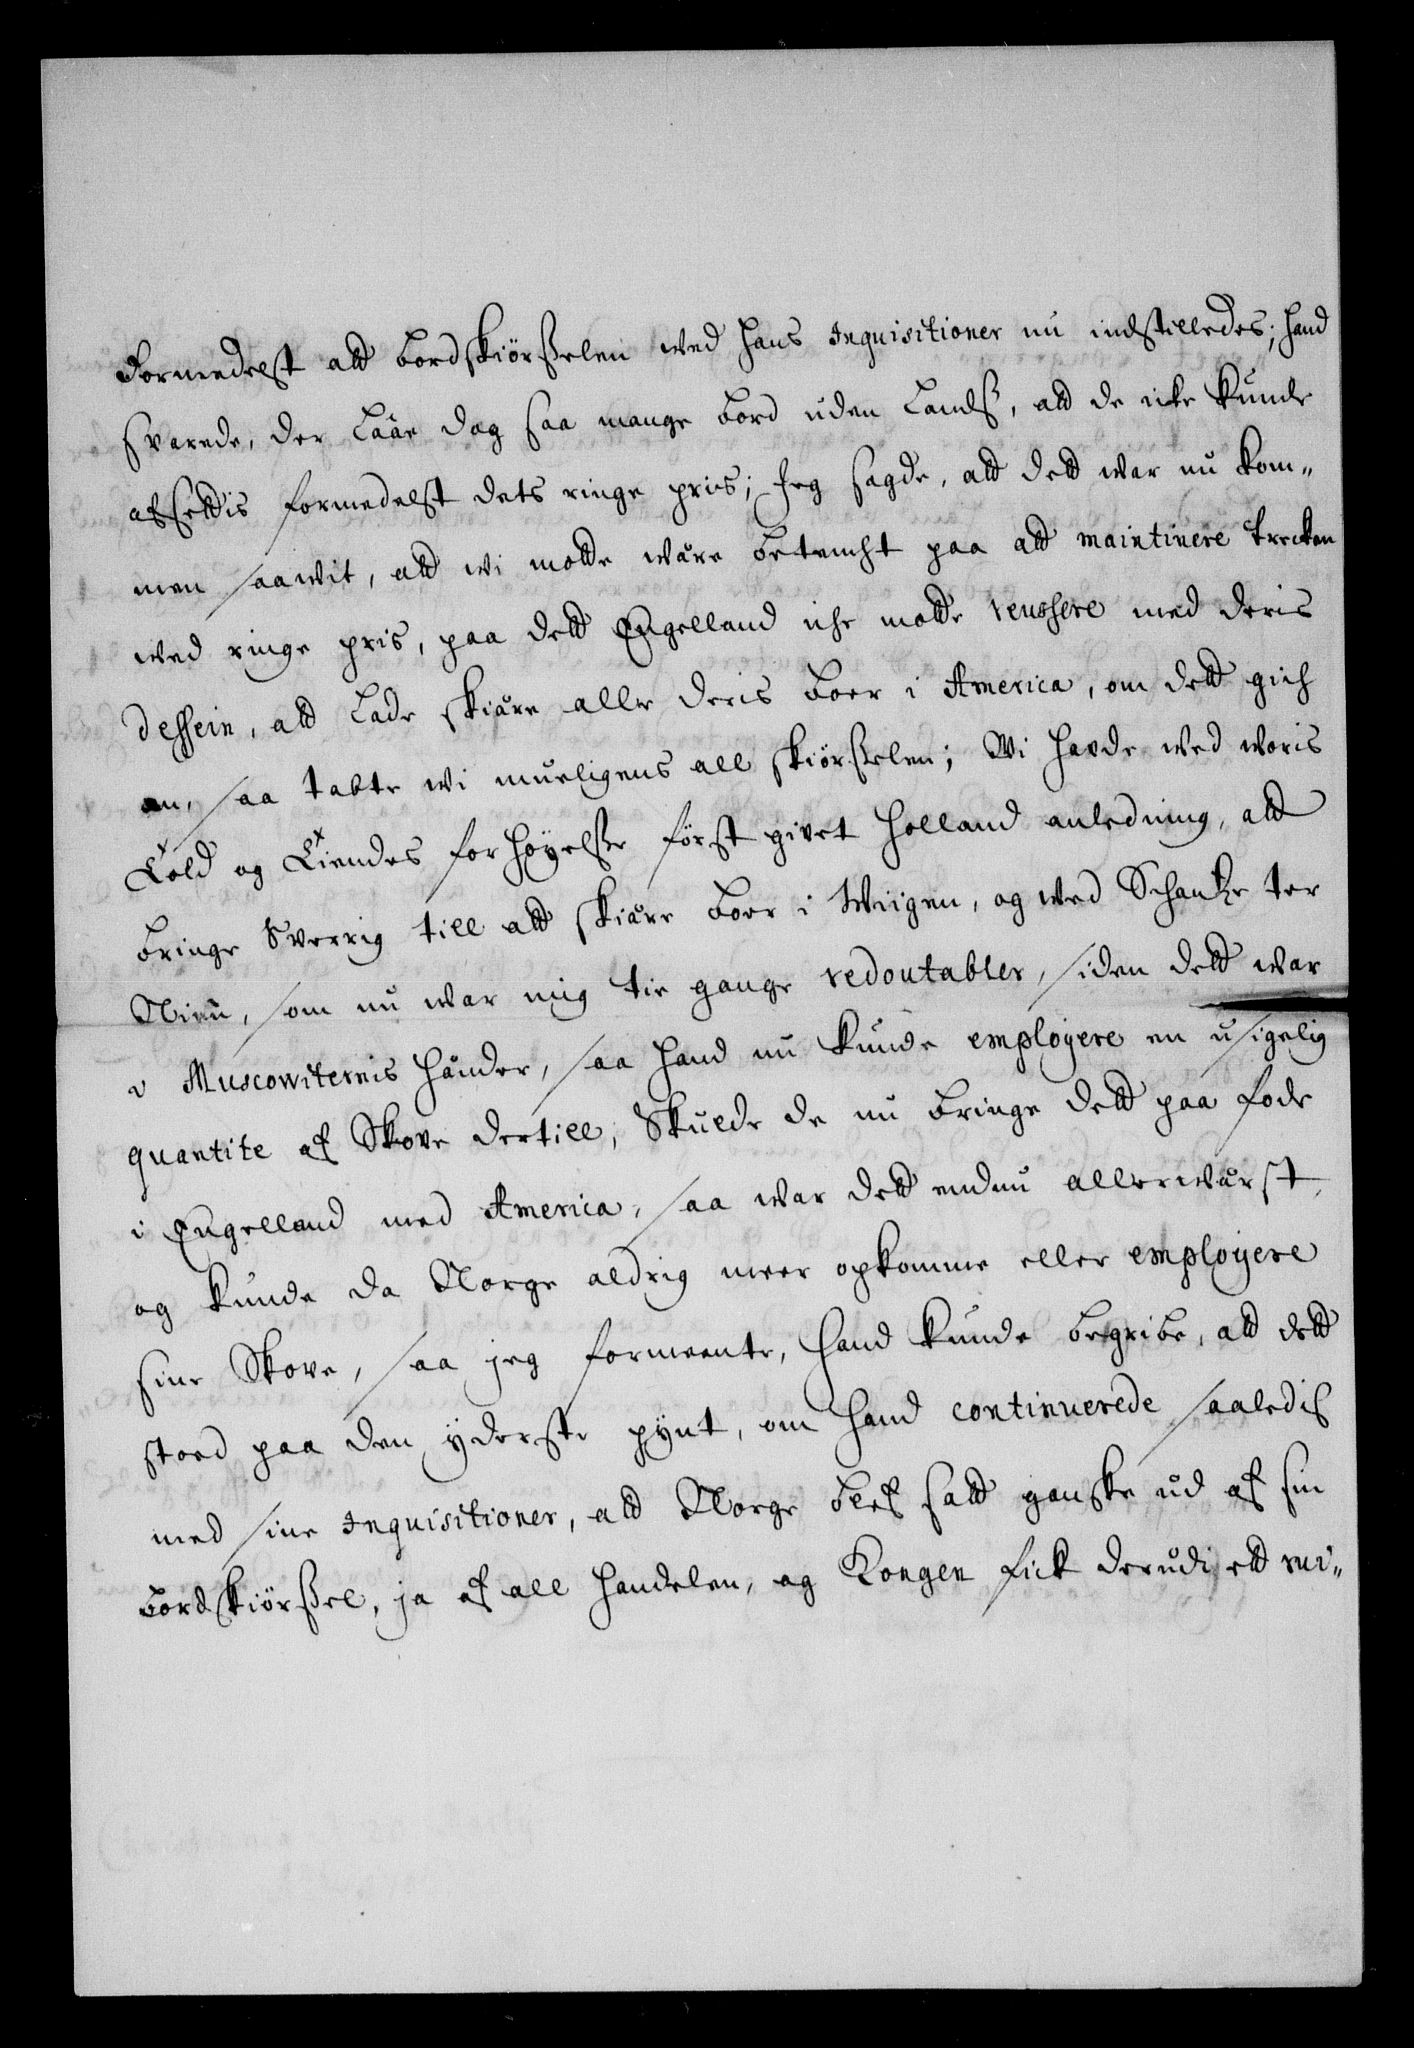 formedelst att bordskiørßelen wed hans Inquisitioner nu indstilledes; hand
svarede, der Lååe dog saa mange bord uden Landß, att de icke kunde
afsettis formedelst dets ringe priis; Jeg sagde, att dett war nu kom-
men saawit, att wi motte wåre betencht paa att maintinere trecken
wed ringe pris, paa dett Engelland iche motte reussere med deris
dessein, att lade skiåre alle deris boer i America, om dett gich
an, saa tabte wi mueligens all skiørßelen; Wi havde wed woris
Told og Tiendes forhøyelße først givet Holland anledning, att
bringe Sverrig till att skiåre boer i Wiigen, og wed Schantze ter
Nien, som nu war mig tie gange redoutabler, siden dett war
i Muscowiternis Hånder, saa hand nu kunde employere en usigelig
quantite af Skove dertill; Skulde de nu bringe dett paa fode
i Engelland med America, saa war dett endnu allerwårst,
og kunde da Norge aldrig meer opkomme eller employere
sine Skove, saa jeg formeente, hand kunde begribe, att dett
stoed paa den yderste pynt, om hand continuerede saaledis
med sine Inquisitioner, att Norge blef satt ganske ud af sin
bordskiørßel, ja af all Handelen, og Kongen fick derudi ett mi-